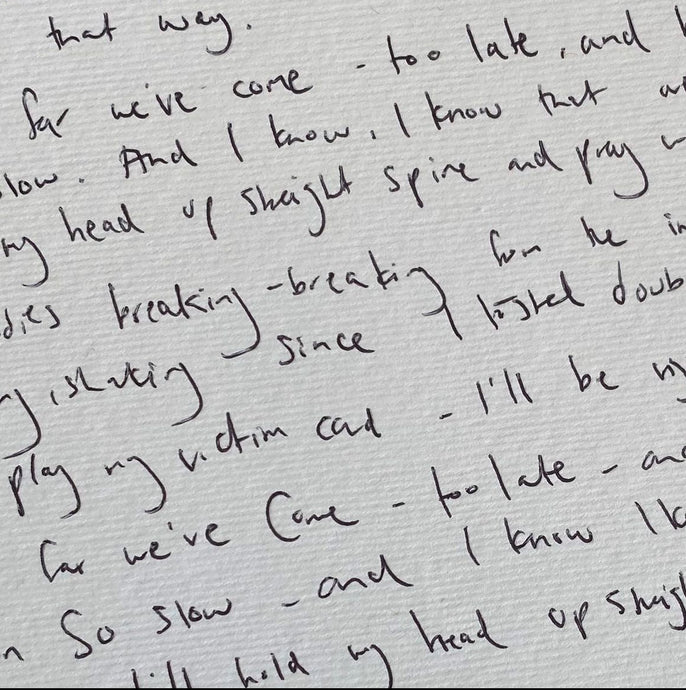 that way.
far we've come - too late, and
slow. And I know, I know that
my head up straight spine and pray
breaking-breaking from the in
shaking since I tasted doub
play my victim card - I'll be my
far we've come - too late - and
So slow - and I know I k
I'll hold my head up straig